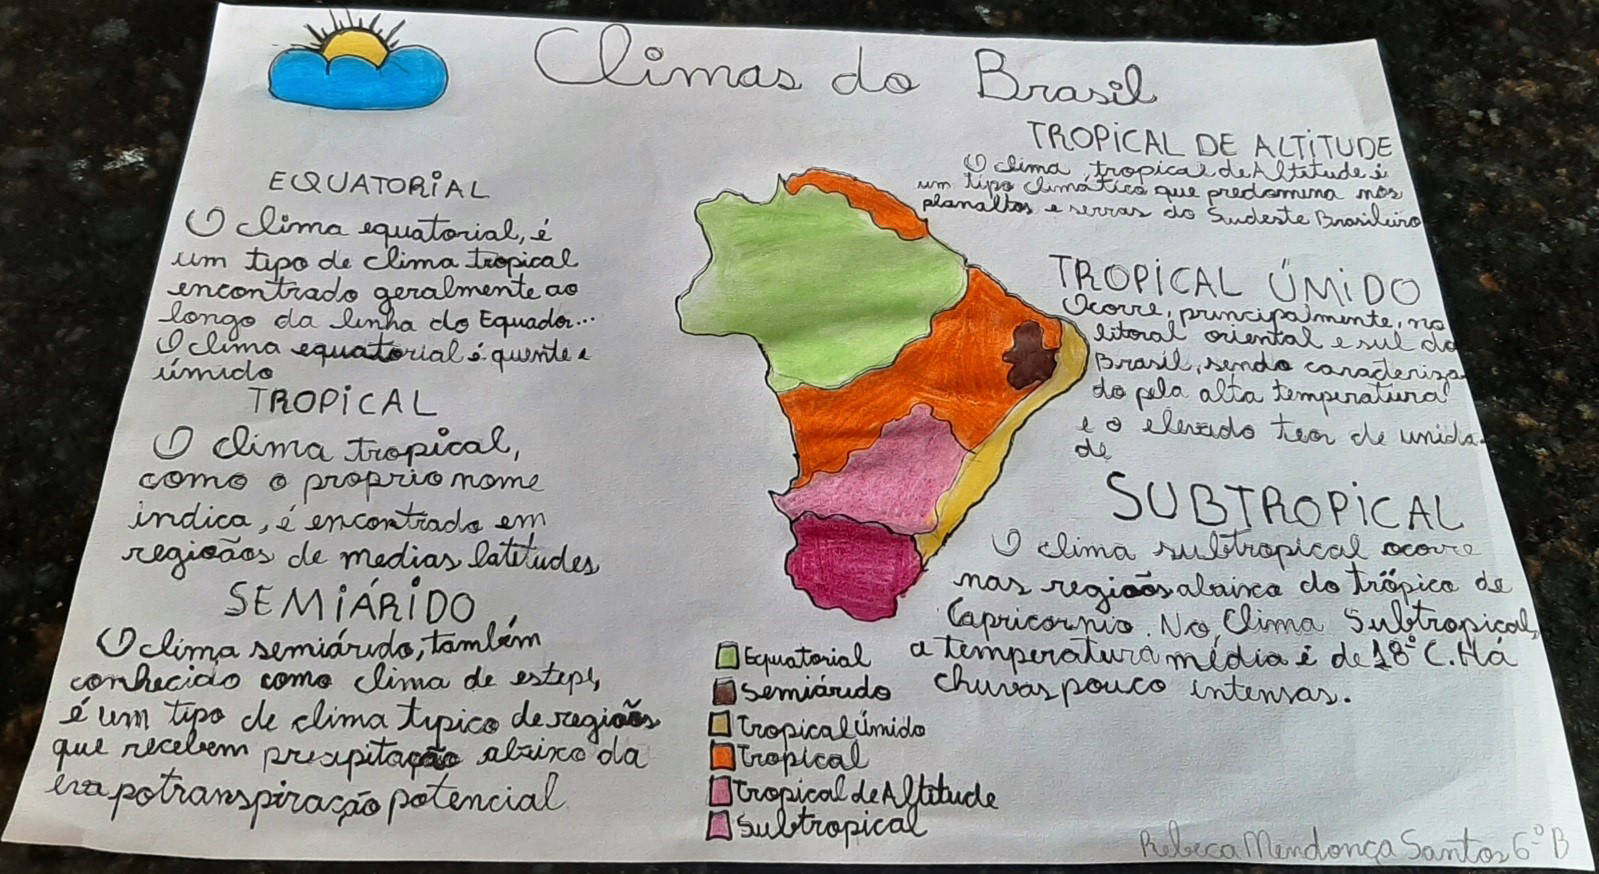 Climas do Brasil
EQUATORIAL
O clima equatorial, é
um tipo de clima tropical
encontrado geralmente ao
longo da linha do Equador...
O clima equatorial é quente e
úmido
TROPICAL
O clima tropical,
como o proprio nome
indica, é encontrado em
regioãos de medias latitudes
SEMIÁRIDO
O clima semiárido, também
conhecido como clima de estepe,
é um tipo de clima typico de regioãs
que recebem presipitação abaixo da
evapotranspiração potencial
TROPICAL DE ALTITUDE
O clima, tropical de Altitude é
um tipo climático que predomina nos
planaltos e serras do Sudeste Brasileiro
TROPICAL ÚMIDO
Ocorre, principalmente, no
litoral oriental e sul do
Brasil, sendo caracteriza
do pela alta temperatura
e o elevado teor de unida-
de
SUBTROPICAL
O clima subtropical ocorre
nas regioãs abaixo do trópico de
Capricornio. No, Clima Subtropical,
a temperatura média é de 18° C. Há
chuvas pouco intensas.
Equatorial
Semiárido
Tropical Úmido
Tropical
Tropical de Altitude
Subtropical
Rebeca Mendonça Santos 6º B